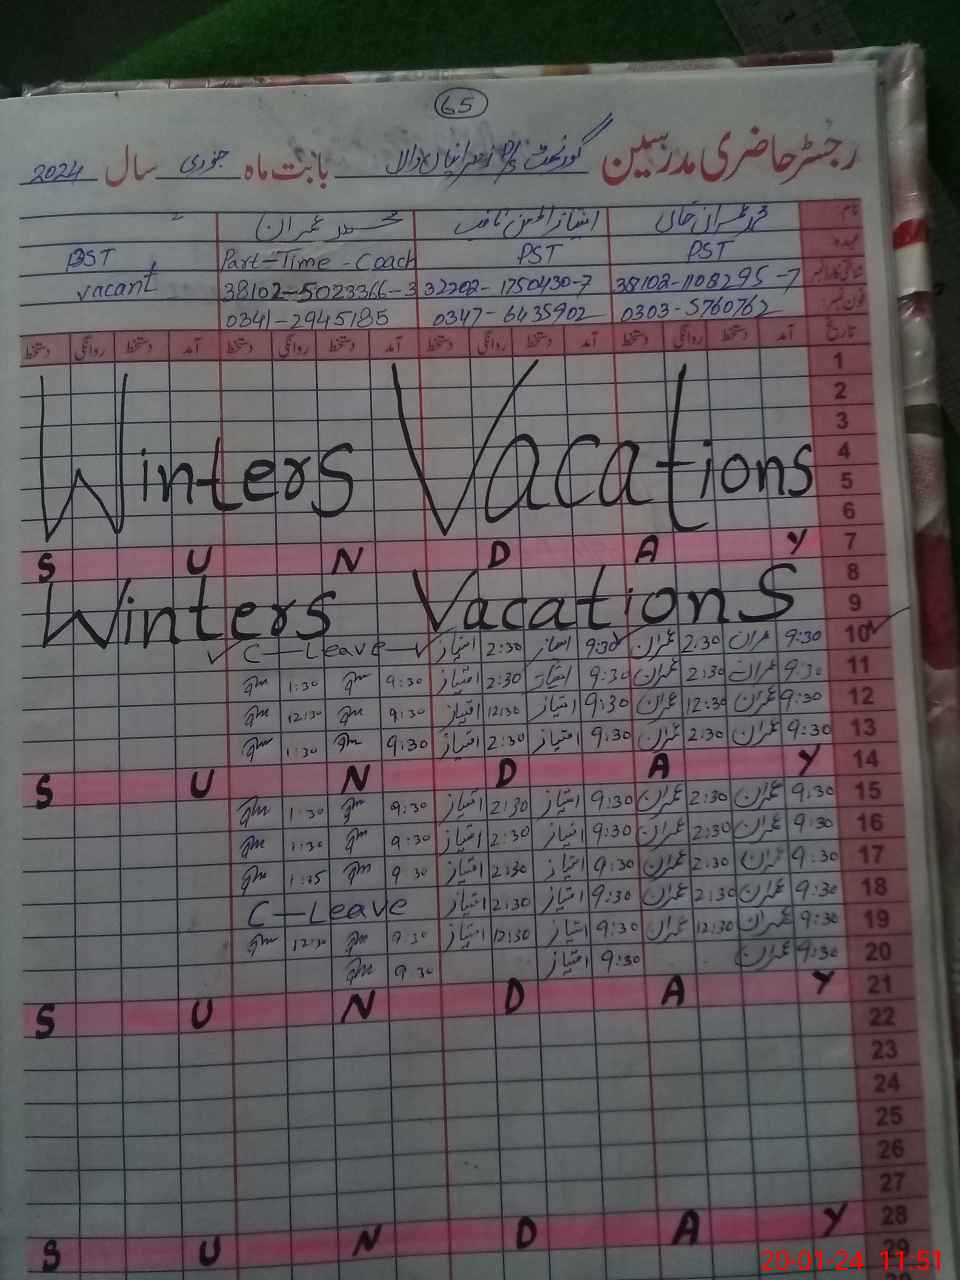 65
رجسٹر حاضری مدرسین گورنمنٹ P/S بابت ماہ جنوری سال 2024
نام محمد عمران خان محمد عمران
عہدہ PST PST Part-Time-Coach PST
38102-1108295-7 32202-1750430-7 38102-5023366-3 vacant
فون نمبر 0303-5760762 0347-6435902 0341-2945185
تاریخ آمد دستخط روانگی دستخط آمد دستخط روانگی دستخط آمد دستخط روانگی دستخط آمد دستخط روانگی دستخط
1
2
3
4
5
6
Winters Vacations
7 SUNDAY
8
9
Winters Vacations
10 9:30 عمران 2:30 عمران 9:30 امتیاز 2:30 امتیاز C-Leave
11 9:30 عمران 2:30 عمران 9:30 امتیاز 2:30 امتیاز 9:30 1:30
12 9:30 عمران 12:30 عمران 9:30 امتیاز 12:30 امتیاز 9:30 12:30
13 9:30 عمران 2:30 عمران 9:30 امتیاز 2:30 امتیاز 9:30 1:30
14 SUNDAY
15 9:30 عمران 2:30 عمران 9:30 امتیاز 2:30 امتیاز 9:30 1:30
16 9:30 عمران 2:30 عمران 9:30 امتیاز 2:30 امتیاز 9:30 1:30
17 9:30 عمران 2:30 عمران 9:30 امتیاز 2:30 امتیاز 9:30 1:15
18 9:30 عمران 2:30 عمران 9:30 امتیاز 2:30 امتیاز C-Leave
19 9:30 عمران 12:30 عمران 9:30 امتیاز 12:30 امتیاز 9:30 12:30
20 9:30 عمران 9:30 امتیاز 9:30
21 SUNDAY
22
23
24
25
26
27
28 SUNDAY
29
20-01-24 11:51